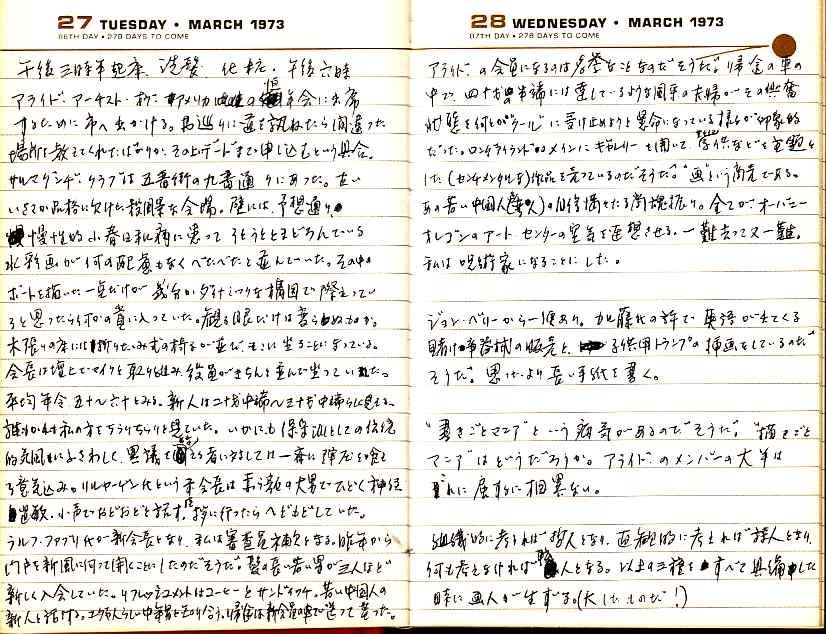 27 TUESDAY • MARCH 1973
86TH DAY • 279 DAYS TO COME
午後三時半起床、洗髪、化粧、午後六時
アライド・アーチスト・オブ・アメリカ の 年会に出席
するために市へ出かける。お巡りに道を訊ねたら間違った
場所を教えてくれたばかりか、その上デートまで申し込むという具合。
サルマグンデ・クラブは五番街の九番通りにあった。古い
いささか品格に欠けた殺風景な会場。壁には、予想通り、
慢性的小春日和病に患って そとうとまどろんでいる
水彩画が何の配慮もなくべたべたと並んでいた。その中
ボートを描いた一点だけが幾分かダイナミックな構図で際立ってい
ると思ったら何かの賞に入っていた。観る眼だけは変らぬものか。
木張りの床には折りたたみ式の椅子が並び、そこに坐ることになっている。
会長は壇上でマイクと取り組み、役員がきちんと並んで坐っていた。
平均年令五十~六十とみる。新人は二十才中端~三十才中端らしく見える。
誰もかれも私の方をちらりちらりと見ていた。いかにも保守派としての伝統
的気風にふさわしく、異議を 者に対しては一斉に陣を
る意気込み。 という 会長は 大男でひどく神経
過敏、小声でおどおどと話す。挨拶に行ったらへどもどしていた。
ラルフ・ファブリ氏が新会長となり、私は審査員補欠となる。昨年から
門戸を新風に向って開くことにしたのだそうだ。髪の長い若い男が三人ほど
新しく入会していた。リフレッシュメントはコーヒーとサンドイッチ。若い中国人の
新人と話す。 中年男と 。帰途は新会員の車で送って貰った。
28 WEDNESDAY • MARCH 1973
87TH DAY • 278 DAYS TO COME
アライドの会員になるのは名誉なことなのだそうだ。帰途の車の
中で、四十才の半端には達しているような同年の夫婦がその興奮
状態を何とか"クール"に受け止めようと懸命になっている様子が印象的
だった。ロングアイランドのメインにギャラリーを開いて、 などを主題と
した(センチメンタルな)作品を売っているのだそうだ。"画"という商売である。
あの若い中国人(美人)の自信満々たる商魂振り。全てが、オーバニー
オレゴンのアート センターの空気を連想させる。一難去って又一難。
私は呪術家になることにした。
ジョン・ベリーから一便あり。加藤氏の許で英語が出てくる
賭け事器械の販売と、子供用トランプの挿画をしているのだ
そうだ。思ったより長い手紙を書く。
"書きごとマニア"という病気があるのだそうだ。"描きごと
マニア"はどうだろうか。アライドのメンバーの大半は
それに属すに相異ない。
組織的に考えれば哲人となり、直観的に考えれば詩人となり、
何も考えなければ 人となる。以上の三種をすべて具備した
時に画人が生ずる。(大したものだ!)